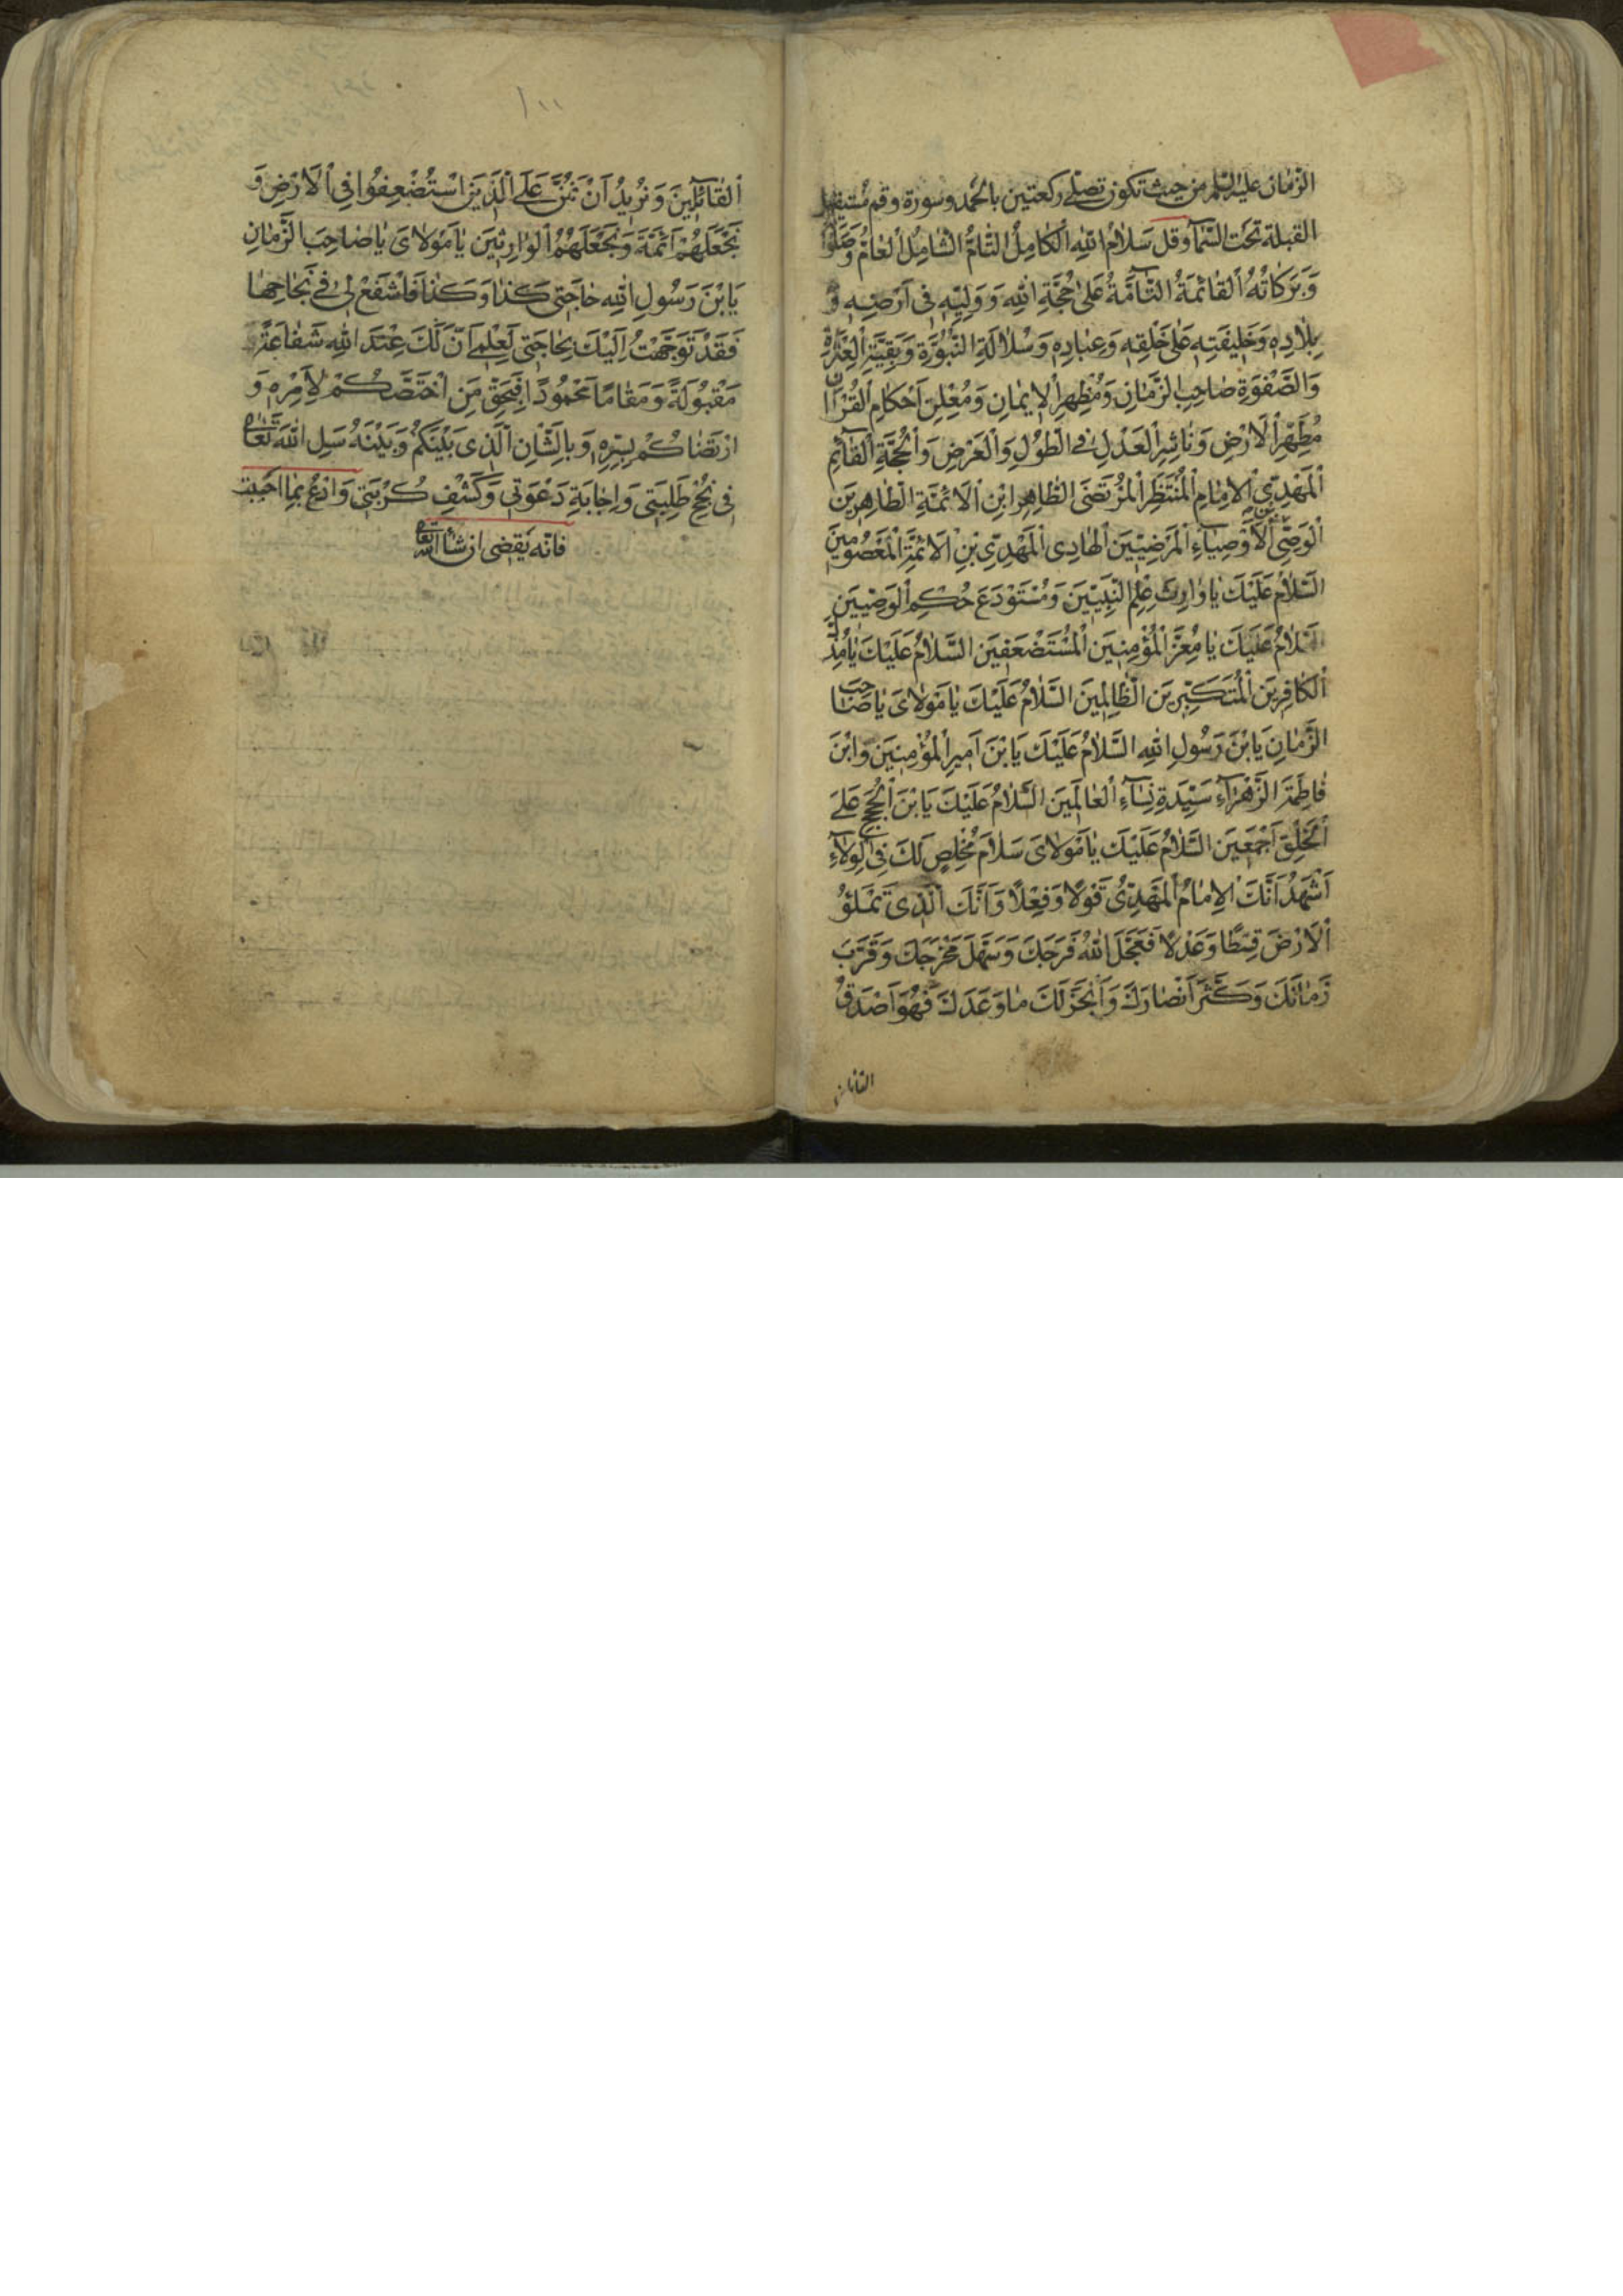 الزمان عليه السلم من حيث تكون تصلى ركعتين بالحمد وسورة وقم مستقبل
القبلة تحت السمآء وقل سَلَامُ اللهِ الْكَامِلُ التَّامُّ الشَّامِلُ الْعَامُّ وَصَلَوَاتُهُ
وَبَرَكَاتُهُ الْقَائِمَةُ التَّآمَّةُ عَلَى حُجَّةِ اللهِ وَوَلِيِّهِ فِى اَرْضِهِ وَ
بِلَادِهِ وَخَلِيفَتِهِ عَلَى خَلْقِهِ وَعِبَادِهِ وَسُلَالَةِ النُّبُوَّةِ وَبَقِيَّةِ الْعِتْرَةِ
وَالصَّفْوَةِ صَاحِبِ الزَّمَانِ وَمُظْهِرِ الْاِيمَانِ وَمُعْلِنِ اَحْكَامِ الْقُرْاٰنِ
مُطَهِّرِ الْاَرْضِ وَنَاشِرِ الْعَدْلِ فِى الطُّولِ وَالْعَرْضِ وَالْحُجَّةِ الْقَآئِمِ
الْمَهْدِيِّ الْاِمَامِ الْمُنْتَظَرِ الْمُرْتَضَى الطَّاهِرِ ابْنِ الْاَئِمَّةِ الطَّاهِرِينَ
الْوَصِيِّ بْنِ الْاَوْصِيَآءِ الْمَرْضِيِّينَ الْهَادِى الْمَهْدِيِّ بْنِ الْاَئِمَّةِ الْمَعْصُومِينَ
السَّلَامُ عَلَيْكَ يَا وَارِثَ عِلْمِ النَّبِيِّينَ وَمُسْتَوْدَعَ حُكْمِ الْوَصِيِّينَ
السَّلَامُ عَلَيْكَ يَا مُعِزَّ الْمُؤْمِنِينَ الْمُسْتَضْعَفِينَ السَّلَامُ عَلَيْكَ يَا مُذِلَّ
الْكَافِرِينَ الْمُتَكَبِّرِينَ الظَّالِمِينَ السَّلَامُ عَلَيْكَ يَا مَوْلَاىَ يَا صَاحِبَ
الزَّمَانِ يَابْنَ رَسُولِ اللهِ السَّلَامُ عَلَيْكَ يَابْنَ اَمِيرِ الْمُؤْمِنِينَ وَابْنَ
فَاطِمَةَ الزَّهْرَآءِ سَيِّدَةِ نِسَآءِ الْعَالَمِينَ السَّلَامُ عَلَيْكَ يَابْنَ الْحُجَجِ عَلَى
الْخَلْقِ اَجْمَعِينَ السَّلَامُ عَلَيْكَ يَا مَوْلَاىَ سَلَامَ مُخْلِصٍ لَكَ فِى الْوِلَآءِ
اَشْهَدُ اَنَّكَ الْاِمَامُ الْمَهْدِيُّ قَوْلًا وَفِعْلًا وَاَنَّكَ الَّذِى تَمْلَؤُ
الْاَرْضَ قِسْطًا وَعَدْلًا فَعَجَّلَ اللهُ فَرَجَكَ وَسَهَّلَ مَخْرَجَكَ وَقَرَّبَ
زَمَانَكَ وَكَثَّرَ اَنْصَارَكَ وَاَنْجَزَ لَكَ مَا وَعَدَكَ فَهُوَ اَصْدَقُ
القائلين
١١
الْقَآئِلِينَ وَنُرِيدُ اَنْ نَمُنَّ عَلَى الَّذِينَ اسْتُضْعِفُوا فِى الْاَرْضِ وَ
نَجْعَلَهُمْ اَئِمَّةً وَنَجْعَلَهُمُ الْوَارِثِينَ يَا مَوْلَاىَ يَا صَاحِبَ الزَّمَانِ
يَابْنَ رَسُولِ اللهِ حَاجَتِى كَذَا وَكَذَا فَاشْفَعْ لِى فِى نَجَاحِهَا
فَقَدْ تَوَجَّهْتُ اِلَيْكَ بِحَاجَتِى لِعِلْمِى اَنَّ لَكَ عِنْدَ اللهِ شَفَاعَةً
مَقْبُولَةً وَمَقَامًا مَحْمُودًا فَبِحَقِّ مَنِ اخْتَصَّكُمْ لِاَمْرِهِ وَ
ارْتَضَاكُمْ لِسِرِّهِ وَبِالشَّاْنِ الَّذِى بَيْنَكُمْ وَبَيْنَهُ سَلِ اللهَ تَعَالَى
فِى نُجْحِ طَلِبَتِى وَاِجَابَةِ دَعْوَتِى وَكَشْفِ كُرْبَتِى وَادْعُ بِمَا اَحْبَبْتَ
فانّه يَقضى انشآء الله تعالى